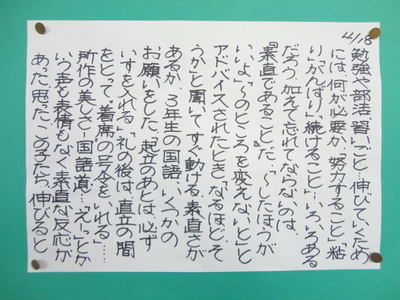 4/18
勉強や部活、習いごと…伸びていくため
には、何が必要か。「努力すること」「粘
り」「がんばり」「続けること」…いろいろある
だろう。加えて忘れてならないのは、
『素直であること』だ。「〜したほうが
いいよ」「〜のところを変えないと」と
アドバイスされたとき、「なるほど、そ
うか」と聞いて、すぐ動ける素直さが
あるか。3年生の国語、いくつかの
お願いをした。「起立のあとは、必ず
いすを入れる」「礼の後は、直立の間
をとって、"着席"の号令をいれる」……
所作の美しい「国語道」…えーっ」とか
いう声も表情もなく、素直な反応が
あった。思った、「この子たち、伸びる」と